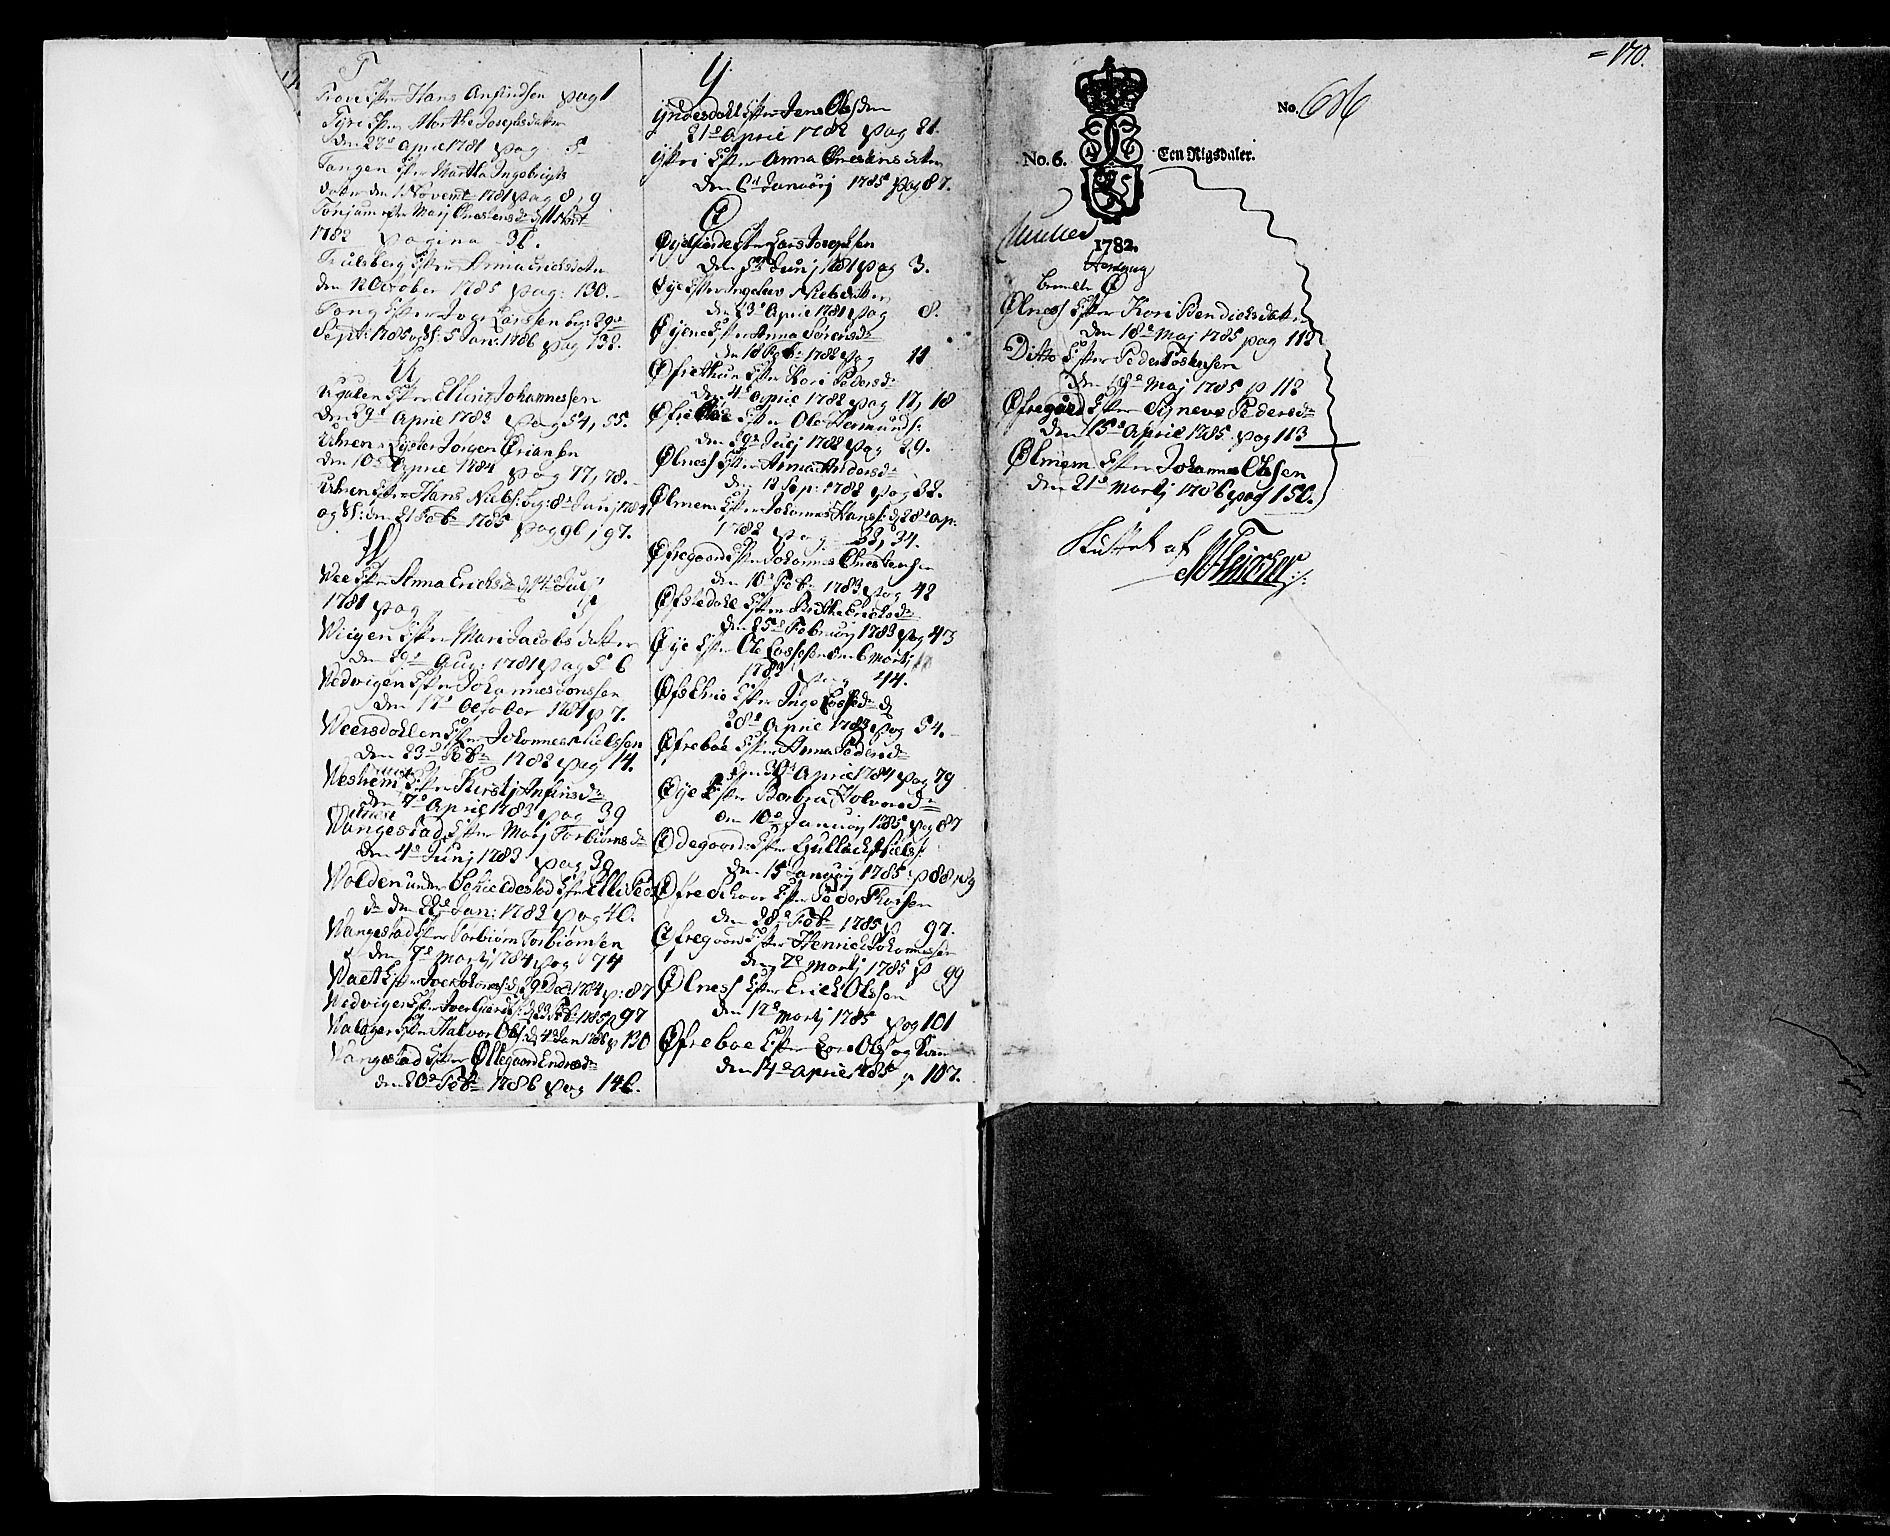 T
Trove efter Hans Anfindsen pag 1
Tyri efter Marthe Josephsdatter
den 27de April 1781 pag 5
Tangen efter Martha Ingebrigts
datter den 1 Novembr 1781 pag 8, 9
Tönjum efter Marj Christensdr d 11
1782 pagina 31.
efter Anna Erichsdatter
den October 1785 pag: 130.
Tong efter Larssen
Septr: 1785 og sl: 5 Janr: 1786 pag 132.
U
Ugulen efter Elling Johannessen
den 29de April 1783 pag 54, 55.
Uhren efter Jörgen Örjansen
den 10de April 1784 pag 77, 78.
Uhren efter Hans Niels: beg: 8de Junj 1784
og sl: den 21 Feb: 1785 pag 96, 97.
W
Wee efter Anna Erichsdr d 4de Julj
1781 pag
Wiigen efter Mari Jacobsdatter
den 29de Aug: 1781 pag 5 6
Wedvigen efter Johannes Jonssen
den 17de October 1781 p 7.
Weersdahlen efter Johannes Nielssen
den 23de Feb: 1782 pag 14.
Weshiem efter Kirstj Anfinsdr
den 7de April 1783 pag 39
Wangestad efter Marj Torbiörnsdr
den 4de Junj 1783 pag 39
Wolden under Schieldestad efter Elli Peds
dr den 22de Jan: 1783 pag 40.
Wangestad efter Torbiörn Torbiörnsen
den 7de Martj 1784 pag 74
efter d 29 Dec: 1784 p: 87
Wedvigen efter Iver d 23 Feb: 1785 p 97
efter Halvor Ols: d 4de Jan 1786 p 130
Wangestad efter Öllegaard Endresdr
den 20de Feb: 1786 pag 146.
Y
Yndesdahl efter Jens Olsen
21de April 1782 pag 21.
Ytri efter Anna Christensdatter
den 6te Januarj 1785 pag 87.
Ø
efter Lars Joensen
den Junj 1781 pag 3.
Øye efter Ingelev Nielsdatter
den 23de April 1781 pag 8.
Øyene efter Anna Sörensdr
den 18 Feb: 1782 pag 11
Øfrethun efter Kari Pedersdr
den 4de April 1782 pag 17, 18
Øfreboe efter Ole Hermunds:
den 29de Julj 1782 pag 29.
Ølness efter Anna Andersdr
den 12 Sep: 1782 pag 32.
Ølmem efter Johannes Hans: d 28de Ap:
1782 pag 33, 34.
Øfregaard efter Johannes Christensen
den 10de Feb: 1783 pag 42
Øfstedahl efter Brithe Erichsdr
den 25de Februarj 1783 pag 43
Øye efter Ole Lassesen den 6 Martj
1783 pag 44.
efter Inge Lassedr d
28de April 1783 pag 54.
Øfreboe efter Anna Pedersdr
den 30de April 1784 pag 79
Øye efter Barbra Holversdr
den 10de Januarj 1785 pag 87
Ødegaard efter Gullach Niels:
den 15 Januarj 1785 p 88, 89
efter Peder Thorsen
den 28de Feb: 1785 p 97.
Øfregaard efter Henrich Johannessen
den 7de Martj 1785 p 99
Ølness efter Erich Olssen
den 12de Martj 1785 pag 101
Øfreboe efter Lars Ols: og Kone
den 14de April 1785 p 107.
= 170.
No. 686
No. 6. Een Rigsdaler.
Müller
1782.
Ø
Ølness efter Kari Bendichsdatter
den 18de Maj 1785 pag 112
Ditto efter Peder Tostensen
den 18de Maj 1785 p 112
Øfregaard efter Signeve Pedersdr
den 15de April 1785 pag 113
Ølmem efter Johannes Olssen
den 21de Martj 1786 pag 150.
Sluttet af